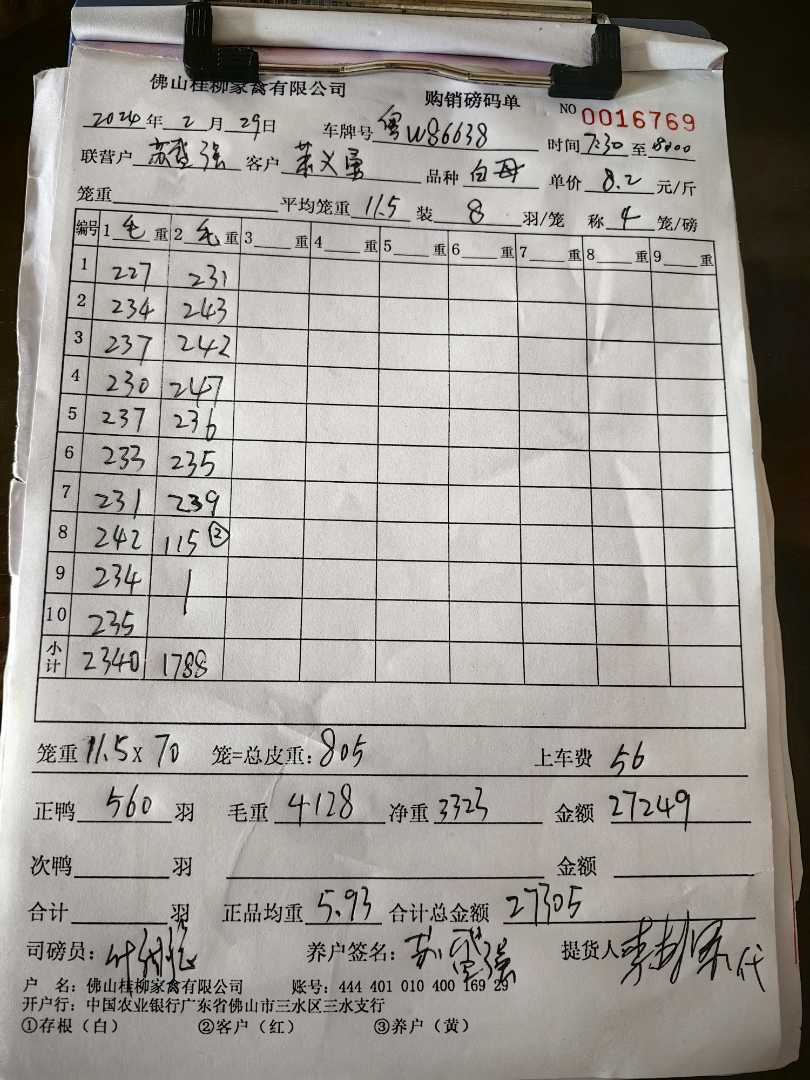 佛山桂柳家禽有限公司 购销磅码单 NO 0016769
2024年2月29日 车牌号 粤W86638 时间 7:30 至 8:00
联营户 苏 强 客户 品种 白母 单价 8.2 元/斤
笼重 平均笼重 11.5 装 8 羽/笼 称 4 笼/磅
编号 1 毛 重 2 毛 重 3 重 4 重 5 重 6 重 7 重 8 重 9 重
1 227 231
2 234 243
3 237 242
4 230 247
5 237 236
6 233 235
7 231 239
8 242 115 ②
9 234
10 235
小计 2340 1788
笼重 11.5 x 70 笼=总皮重: 805 上车费 56
正鸭 560 羽 毛重 4128 净重 3323 金额 27249
次鸭 羽 金额
合计 羽 正品均重 5.93 合计总金额 27305
司磅员: 养户签名: 苏 强 提货人 代
户 名: 佛山桂柳家禽有限公司 账号: 444 401 010 400 169 29
开户行: 中国农业银行广东省佛山市三水区三水支行
①存根(白) ②客户(红) ③养户(黄)